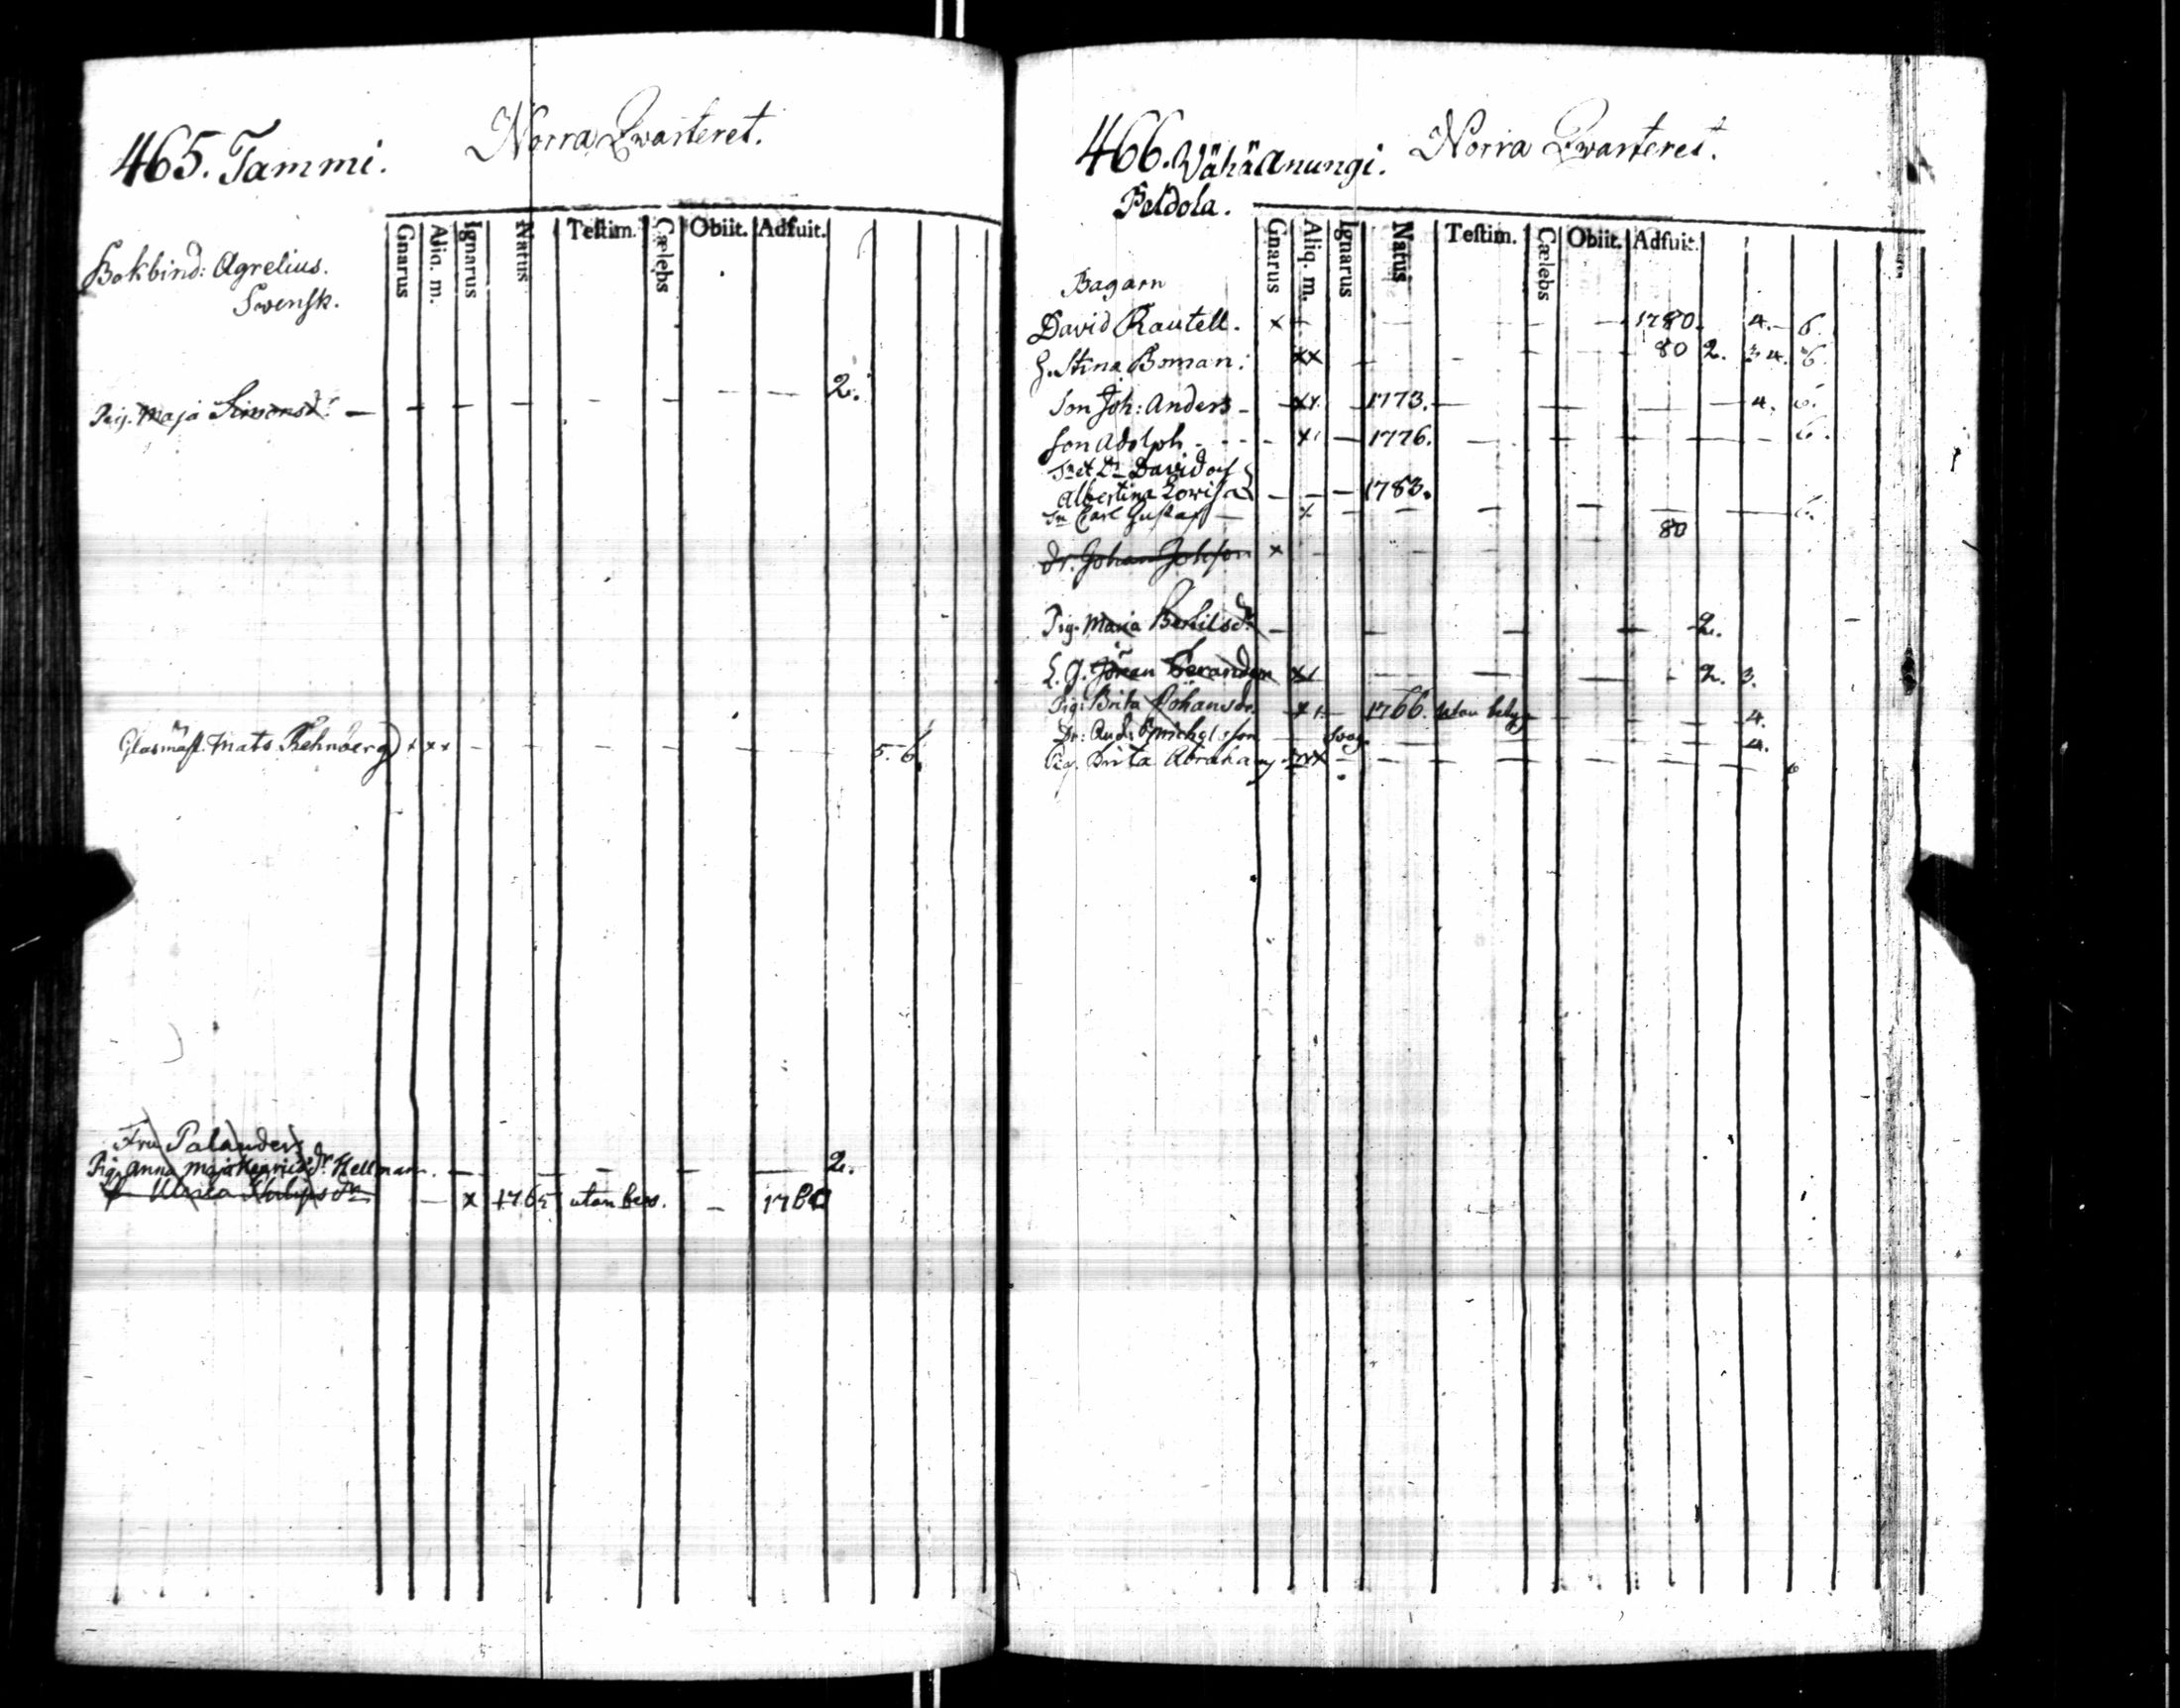 465. Tammi. Norra Qwarteret.
Gnarus Aliq. m. Ignarus Natus Testim. Cælebs Obiit. Adfuit.
Bokbind: Agrelius.
Swensk.
Pig. Maja Simonsdr — — — — — — — — — 2.
Glasmäst. Mats Rehnberg x x x — — — — — — 5. 6.
Fru Palander
Pig. Anna Maja Henricsdr Hellman. — — — — — 2.
Maria — x 1765 utan bew. — 1780
466. Wähä Anungi. Norra Qwarteret.
Peldola.
Gnarus Aliq. m. Ignarus Natus Testim. Cælebs Obiit. Adfuit.
Bagarn
David Rautell. x — — — — 1780. 4. — 6.
H. Stina Boman. xx — — — 80 2. 3 4. 6.
Son Joh: Anders — xx — 1773. — — — — 4. 6.
Son Adolph — — — x — 1776. — — — — — 6.
Sn et Dr David och
Albertina Lowisa — — — 1783.
Sn Carl Gustaf — x — — — — — — 6.
80
dr. Johan Johsson x — — —
Pig. Maria Bertilsdr — — — — 2.
L. G. Jöran x — — — — 2. 3.
Pig. Brita Johansdr. — x — 1766. utan betyg — — — 4.
Dr: And: Michelsson — swag. — — — — — 4.
Pig. Brita Abraham — — — — — — — 6